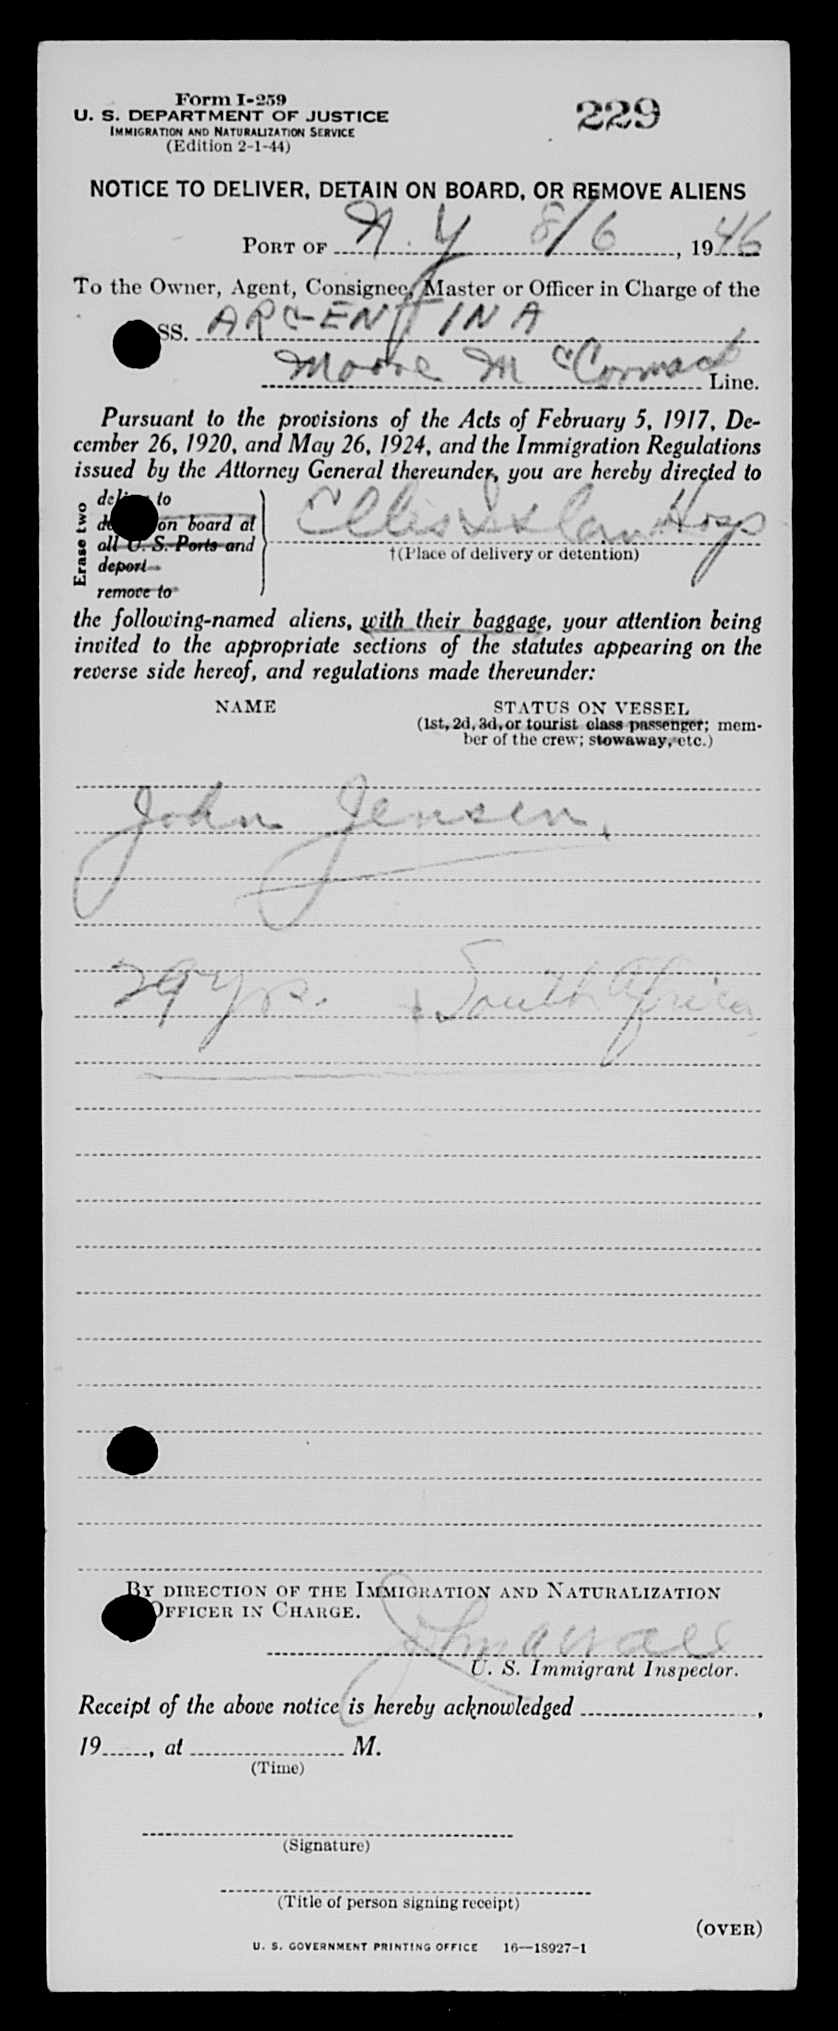 Form I-259
229
U. S. DEPARTMENT OF JUSTICE
IMMIGRATION AND NATURALIZATION SERVICE
(Edition 2-1-44)
NOTICE TO DELIVER, DETAIN ON BOARD, OR REMOVE ALIENS
PORT OF N.Y 8/6, 1946
To the Owner, Agent, Consignee, Master or Officer in Charge of the
SS. ARGENTINA
Moore McCormack Line.
Pursuant to the provisions of the Acts of February 5, 1917, De-
cember 26, 1920, and May 26, 1924, and the Immigration Regulations
issued by the Attorney General thereunder, you are hereby directed to
Erase two
deliver to
on board at
all U. S. Ports and
deport
remove to
Ellis Island Hosp
†(Place of delivery or detention)
the following-named aliens, with their baggage, your attention being
invited to the appropriate sections of the statutes appearing on the
reverse side hereof, and regulations made thereunder:
NAME STATUS ON VESSEL
(1st, 2d, 3d, or tourist class passenger; mem-
ber of the crew; stowaway, etc.)
John Jensen.
29 yrs. South Africa
BY DIRECTION OF THE IMMIGRATION AND NATURALIZATION
OFFICER IN CHARGE.
U. S. Immigrant Inspector.
Receipt of the above notice is hereby acknowledged ,
19 , at M.
(Time)
(Signature)
(Title of person signing receipt)
(OVER)
U. S. GOVERNMENT PRINTING OFFICE 16—18927-1